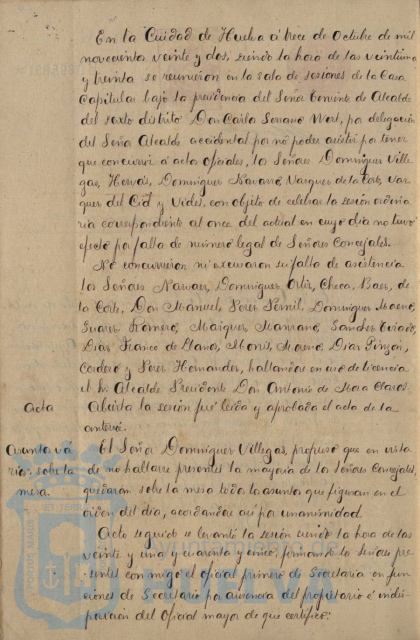 En la Ciudad de Huelva á trece de Octubre de mil
novecientos veinte y dos, siendo la hora de las veintiuna
y treinta se reunieron en la sala de sesiones de la Casa
Capitular bajo la presidencia del Señor Teniente de Alcalde
del sexto distrito Don Carlos Soriano Mort, por delegación
del Señor Alcalde accidental por no poder asistir por tener
que concurrir á actos oficiales, los Señores Dominguez Ville
gas, Hervás, Dominguez Navarro, Vazquez de la Corte, Vaz
quez del Cid y Vides, con objeto de celebrar la sesión ordina
ria correspondiente al once del actual en cuyo día no tuvo
efecto por falta de número legal de Señores Concejales.
No concurrieron ni excusaron su falta de asistencia
los Señores Dominguez Ortiz, Checa, Baez, de
la Corte, Don Manuel, Perez Dominguez Moreno,
Suarez Romero, Marquez Manzano, Sanchez
Diaz Franco de Llanos, Moreno, Diaz Pinzón,
Cordero y Perez Hernandez, hallandose en uso de licencia
el Sr. Alcalde Presidente Don Antonio de Mora Claros.
Acta Abierta la sesión fué leida y aprobada el acta de la
anterior.
Asuntos vá El Señor Dominguez Villegas, propuso que en vista
rios: sobre la de no hallarse presentes la mayoría de los Señores Concejales,
mesa. quedaran sobre la mesa todos los asuntos que figuran en el
orden del día, acordandose asi por unanimidad.
Acto seguido se levantó la sesión siendo la hora de las
veinte y una y cuarenta y cinco, firmando los señores pre
sentes con migo el oficial primero de Secretaria en fun
ciones de Secretario por ausencia del propietario é indis-
posición del Oficial mayor de que certifico: